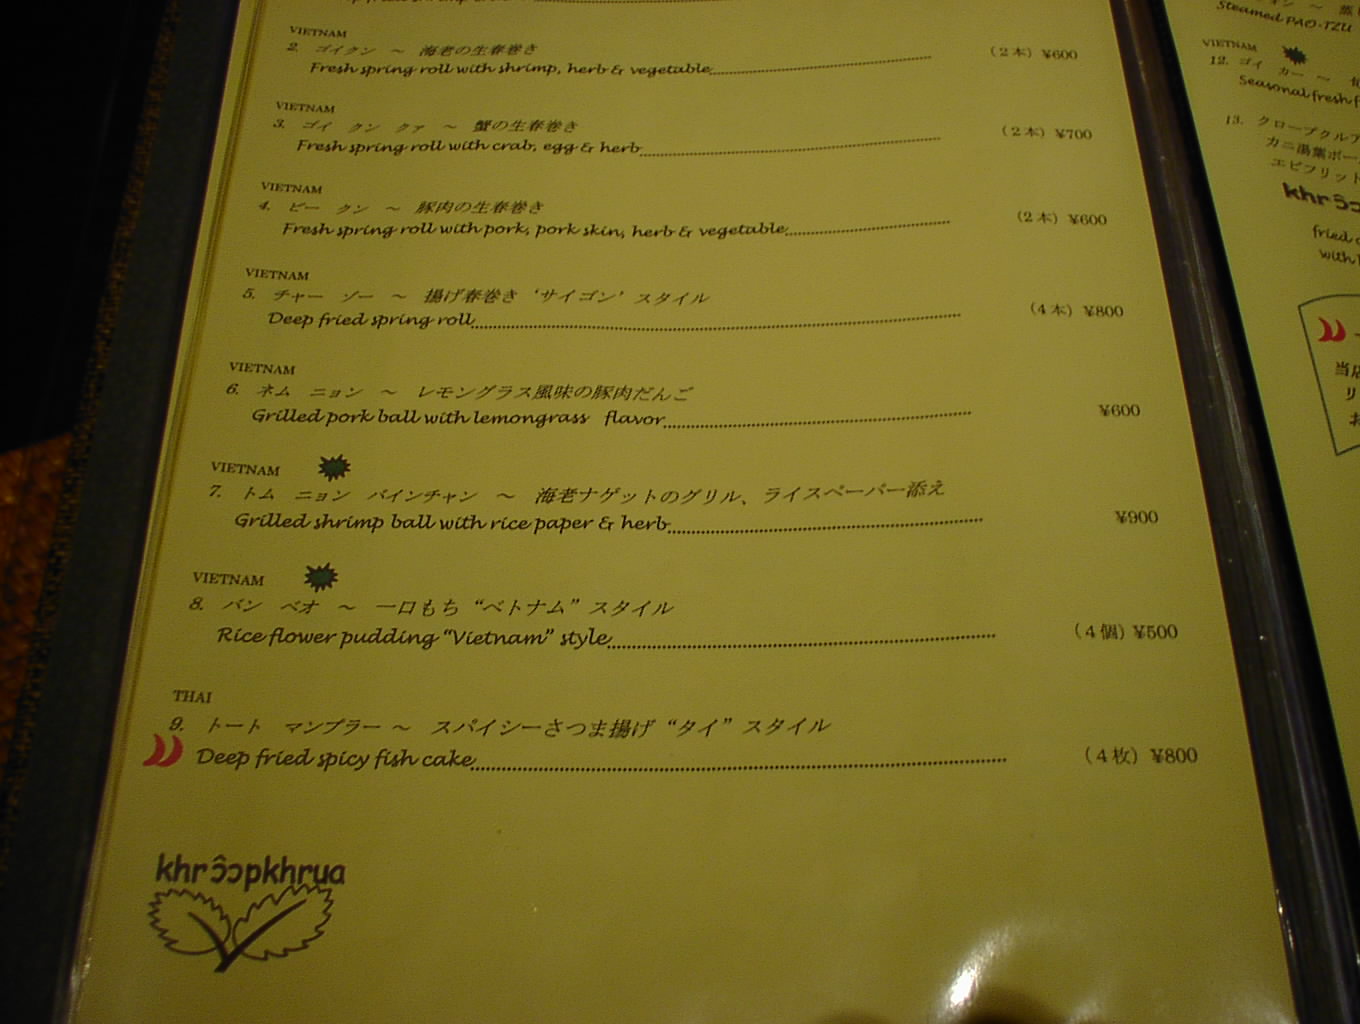 VIETNAM
2. ゴイクン ～ 海老の生春巻き
Fresh spring roll with shrimp, herb & vegetable (2本) ¥600
VIETNAM
3. ゴイ クン クァ ～ 蟹の生春巻き
Fresh spring roll with crab, egg & herb (2本) ¥700
VIETNAM
4. ビー クン ～ 豚肉の生春巻き
Fresh spring roll with pork, pork skin, herb & vegetable (2本) ¥600
VIETNAM
5. チャー ゾー ～ 揚げ春巻き ‘サイゴン’ スタイル
Deep fried spring roll (4本) ¥800
VIETNAM
6. ネム ニョン ～ レモングラス風味の豚肉だんご
Grilled pork ball with lemongrass flavor ¥600
VIETNAM
7. トム ニョン バインチャン ～ 海老ナゲットのグリル、ライスペーパー添え
Grilled shrimp ball with rice paper & herb ¥900
VIETNAM
8. バン ベオ ～ 一口もち “ベトナム” スタイル
Rice flower pudding “Vietnam” style (4個) ¥500
THAI
9. トート マンプラー ～ スパイシーさつま揚げ “タイ” スタイル
Deep fried spicy fish cake (4枚) ¥800
khrɔ̂ɔpkhrua
Steamed PAO-TZU
VIETNAM
12. ゴイ カー ～
Seasonal fresh
13. クロープクルア
カニ湯葉ボー
エビフリット
khrɔ̂ɔ
fried
with
当店
リ
お